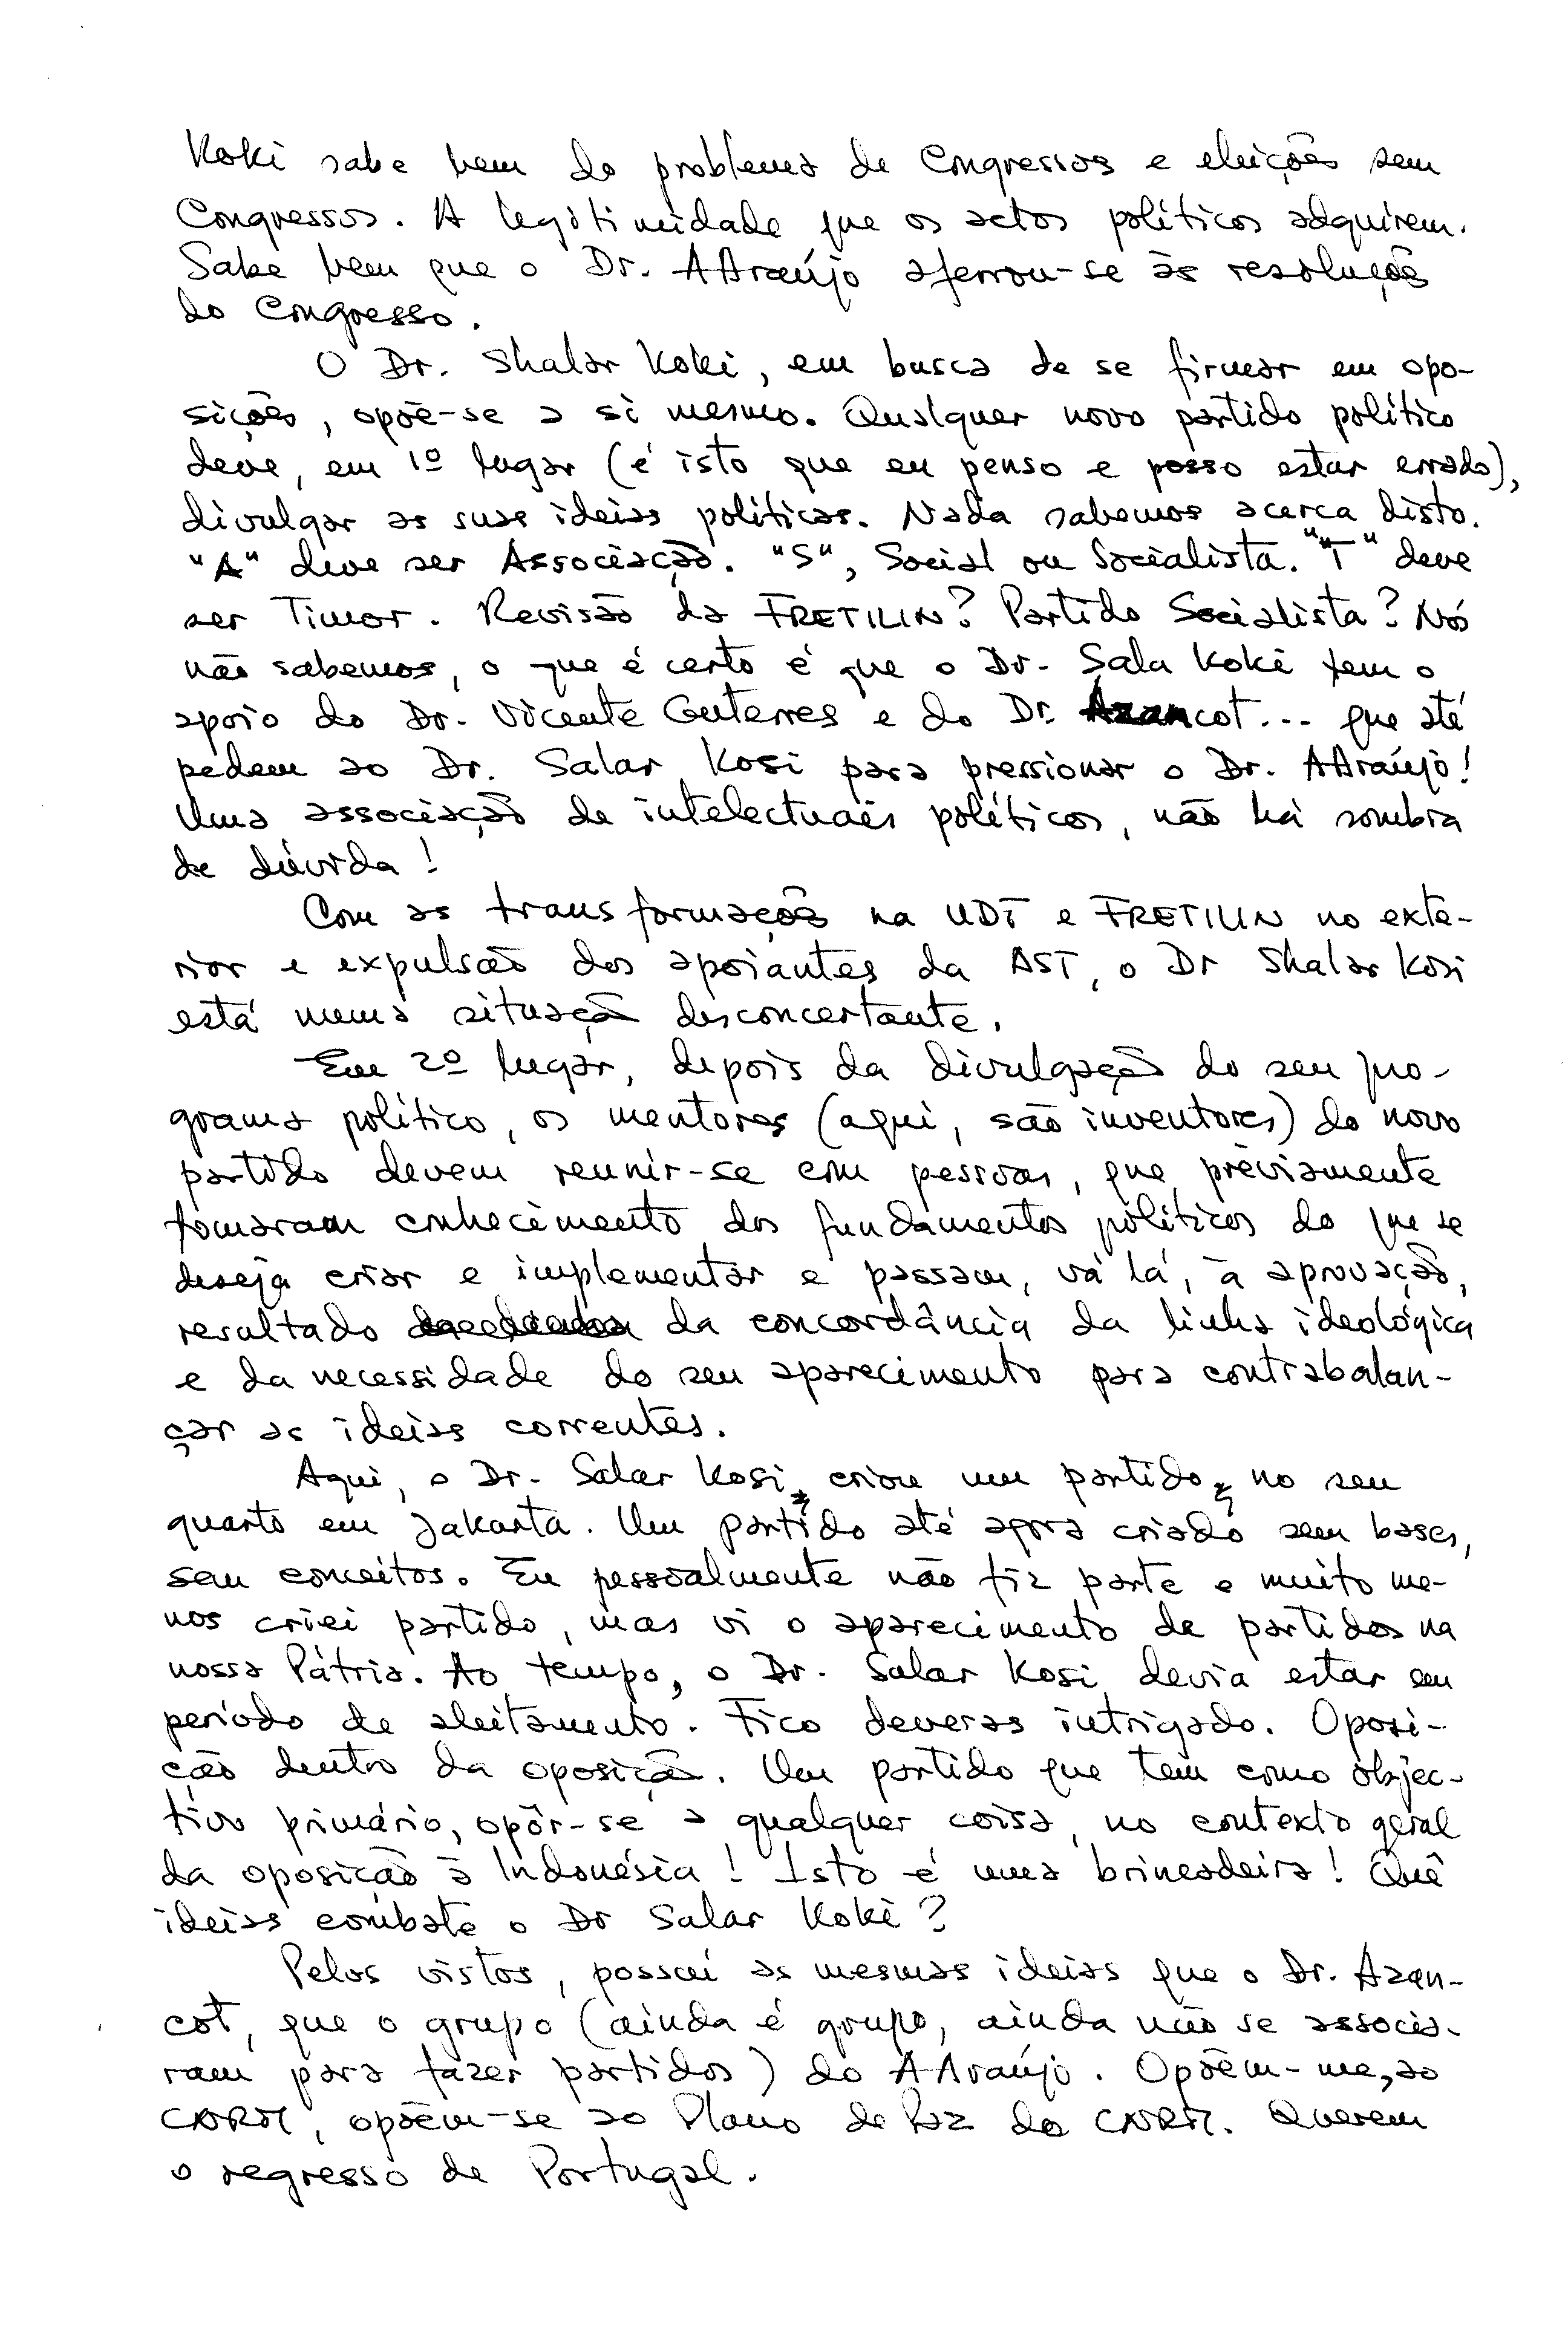 Koki sabe bem do problema de Congressos e eleições sem
Congressos. A legitimidade que os actos políticos adquirem.
Sabe bem que o Dr. AAraújo aferrou-se às resoluções
do Congresso.
O Dr. Shalar Koki, em busca de se firmar em opo-
sições, opõe-se a si mesmo. Qualquer novo partido político
deve, em 1º lugar (é isto que eu penso e posso estar errado),
divulgar as suas ideias políticas. Nada sabemos acerca disto.
"A" deve ser Associação. "S", Social ou Socialista. "T" deve
ser Timor. Revisão da FRETILIN? Partido Socialista? Nós
não sabemos, o que é certo é que o Dr. Sala Koki tem o
apoio do Dr. Vicente Guterres e do Dr. Azancot... que até
pedem ao Dr. Salar Kosi para pressionar o Dr. AAraújo!
Uma associação de intelectuais políticos, não há sombra
de dúvida!
Com as transformações na UDT e FRETILIN no exte-
rior e expulsão dos apoiantes da AST, o Dr Shalar Kosi
está numa situação desconcertante.
Em 2º lugar, depois da divulgação do seu pro-
grama político, os mentores (aqui, são inventores) do novo
partido devem reunir-se com pessoas, que prèviamente
tomaram conhecimento dos fundamentos políticos do que se
deseja criar e implementar e passam, vá lá, à aprovação,
resultado da concordância da linha ideológica
e da necessidade do seu aparecimento para contrabalan-
çar as ideias correntes.
Aqui, o Dr. Salar Kosi criou um partido no seu
quarto em Jakarta. Um partido até agora criado sem bases,
sem conceitos. Eu pessoalmente não fiz parte e muito me-
nos criei partido, mas vi o aparecimento de partidos na
nossa Pátria. Ao tempo, o Dr. Salar Kosi devia estar em
período de aleitamento. Fico deveras intrigado. Oposi-
ção dentro da oposição. Um partido que tem como objec-
tivo primário, opôr-se a qualquer coisa, no contexto geral
da oposição à Indonésia! Isto é uma brincadeira! Quê
ideias combate o Dr Salar Koki?
Pelos vistos, possui as mesmas ideias que o Dr. Azan-
cot, que o grupo (ainda é grupo, ainda não se associa-
ram para fazer partidos) do AAraújo. Opõem-me, ao
CNRM, opõem-se ao Plano de Paz do CNRM. Querem
o regresso de Portugal.